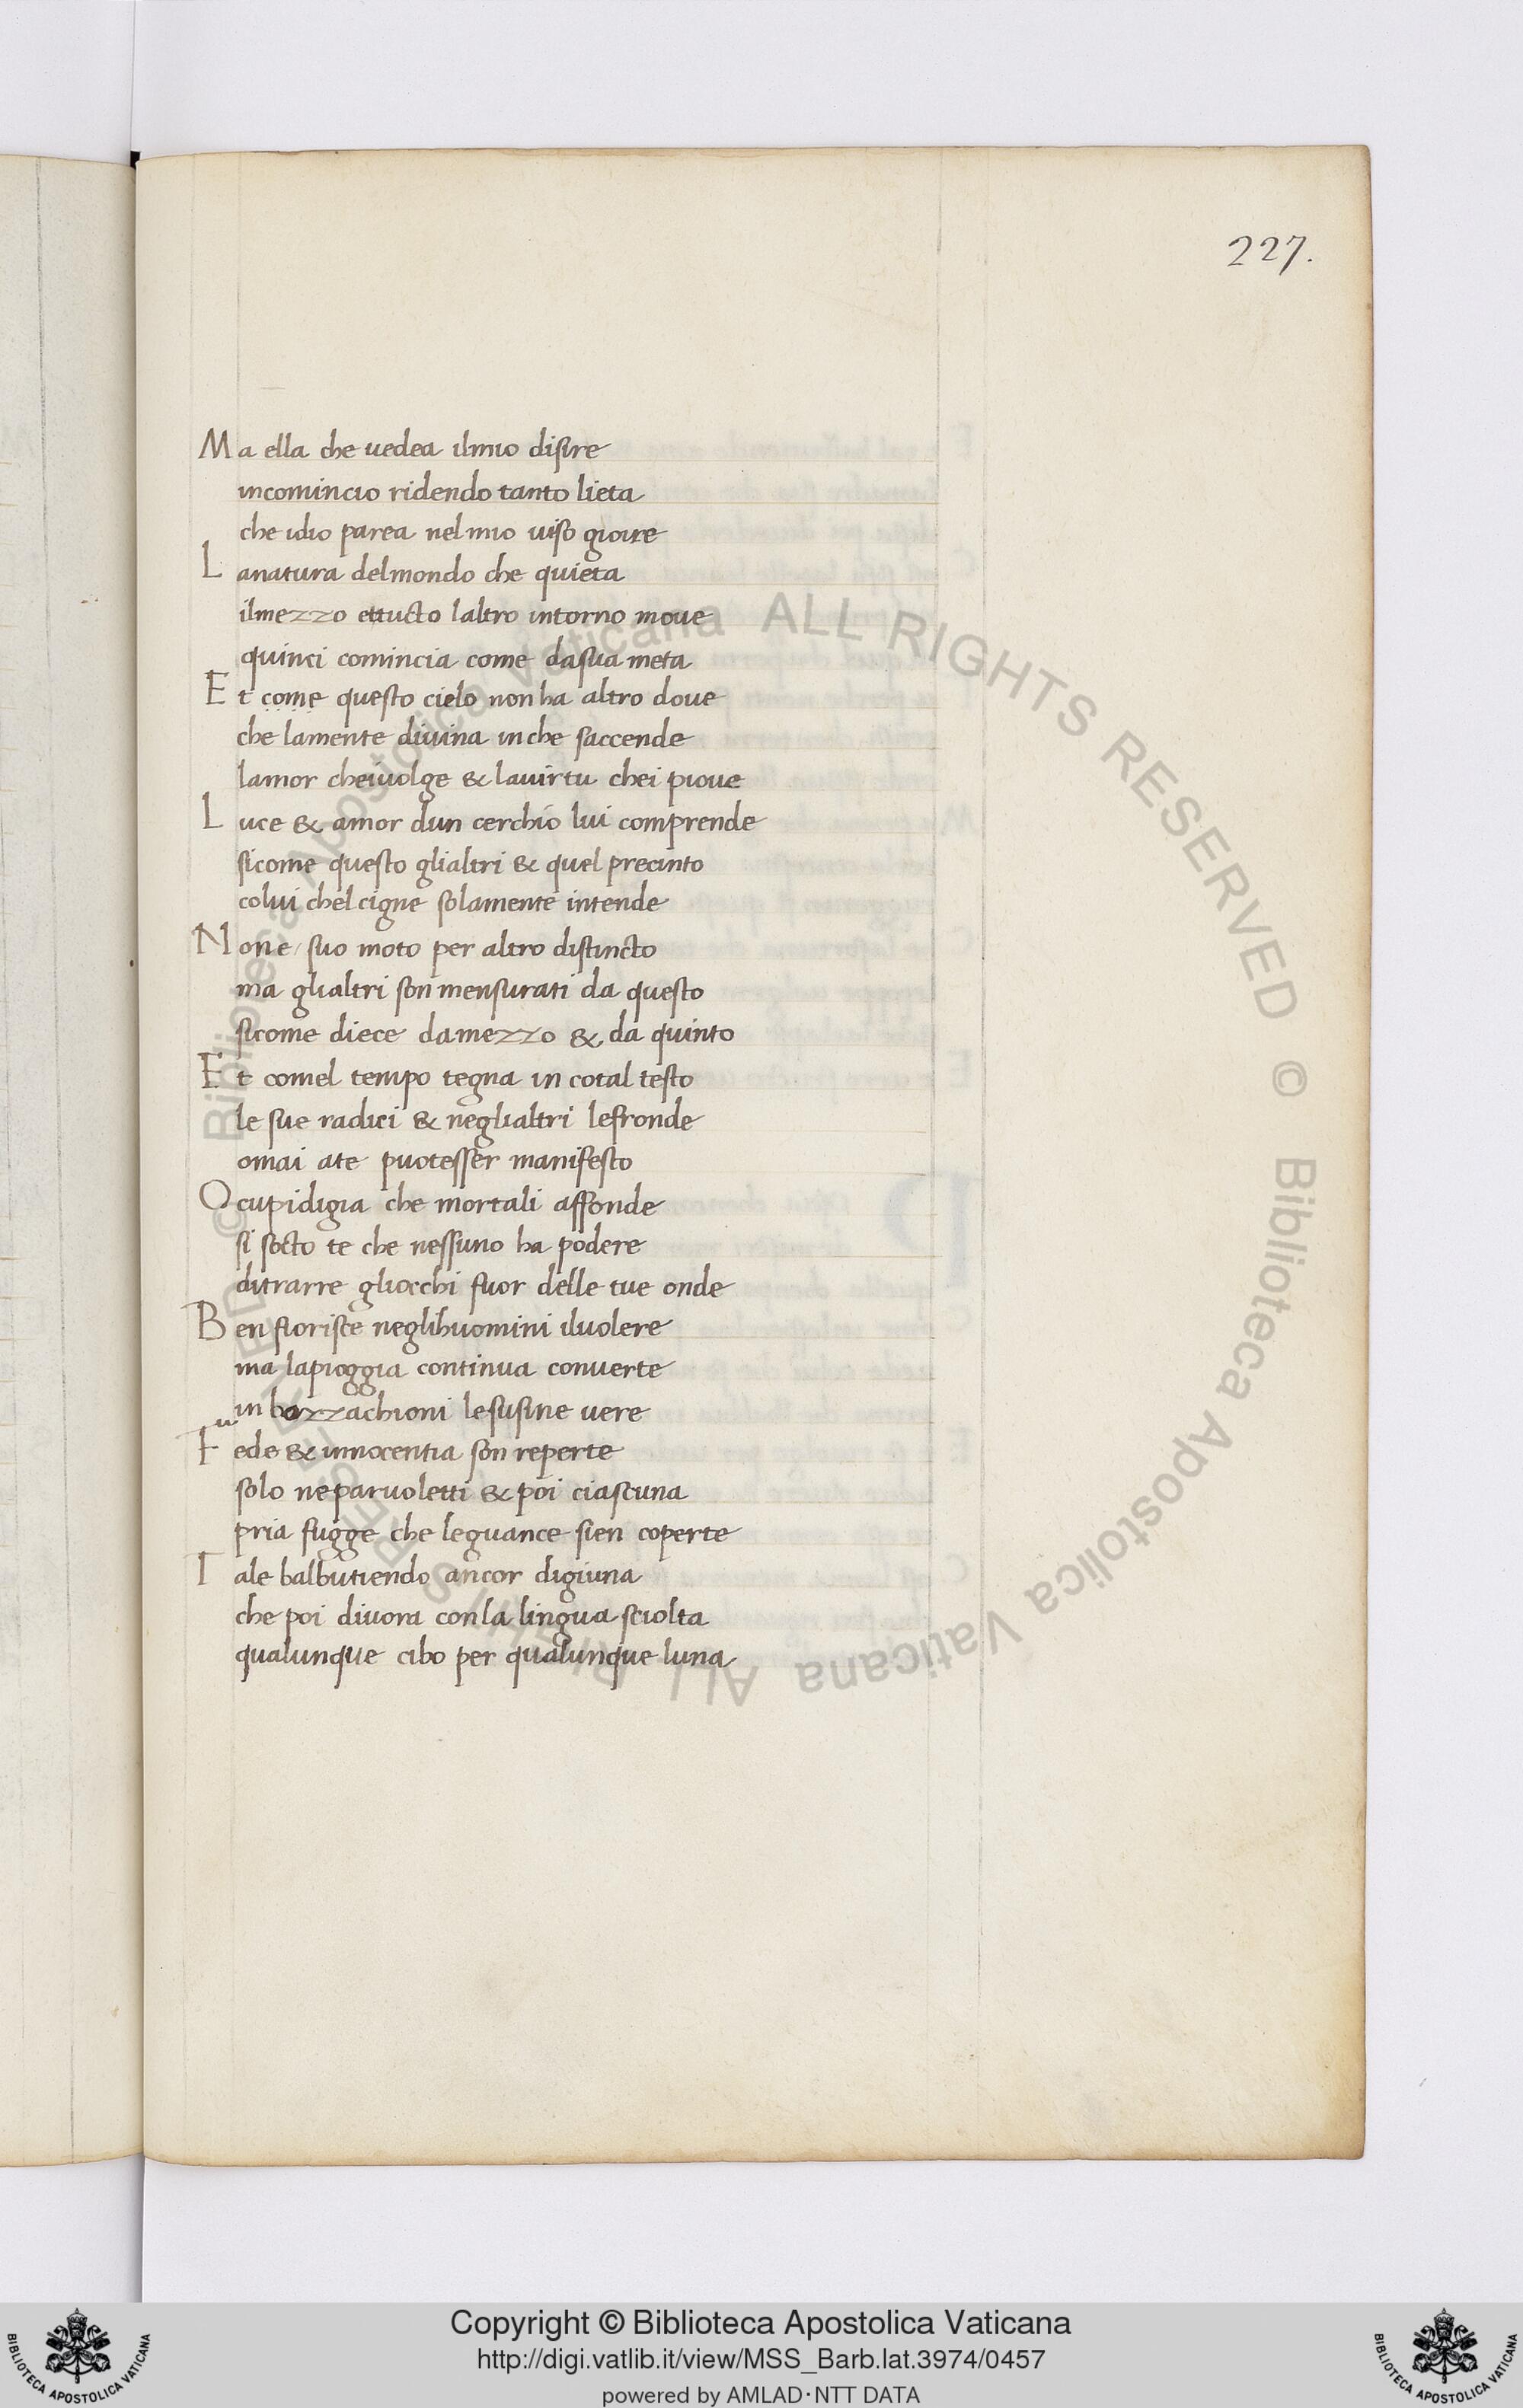 227.
Ma ella che uedea ilmio disire
incomincio ridendo tanto lieta
che idio parea nel mio uiso gioire
Lanatura delmondo che quieta
ilmezzo ettucto laltro intorno moue
quinci comincia come dasua meta
Et come questo cielo non ha altro doue
che lamente diuina inche saccende
lamor cheiuolge & lauirtu chei pioue
Luce & amor dun cerchio lui comprende
sicome questo glialtri & quel precinto
colui chel cigne solamente intende
None suo moto per altro distincto
ma glialtri son mensurati da questo
sicome diece damezzo & da quinto
Et comel tempo tegna in cotal testo
le sue radici & neglialtri lefronde
omai ate puotesser manifesto
O cupidigia che mortali affonde
si socto te che nessuno ha podere
ditrarre gliocchi fuor delle tue onde
Ben fiorisce neglihuomini iluolere
ma lapioggia continua conuerte
in bozzachioni lesusine uere
Fede & innocentia son reperte
solo neparuoletti & poi ciascuna
pria fugge che leguance sien coperte
Tale balbutiendo ancor digiuna
che poi diuora conla lingua sciolta
qualunque cibo per qualunque luna
© Biblioteca Apostolica Vaticana ALL RIGHTS RESERVED © Biblioteca Apostolica Vaticana ALL RIGHTS RESERVED
Copyright © Biblioteca Apostolica Vaticana
http://digi.vatlib.it/view/MSS_Barb.lat.3974/0457
powered by AMLAD·NTT DATA
BIBLIOTECA APOSTOLICA VATICANA
BIBLIOTECA APOSTOLICA VATICANA